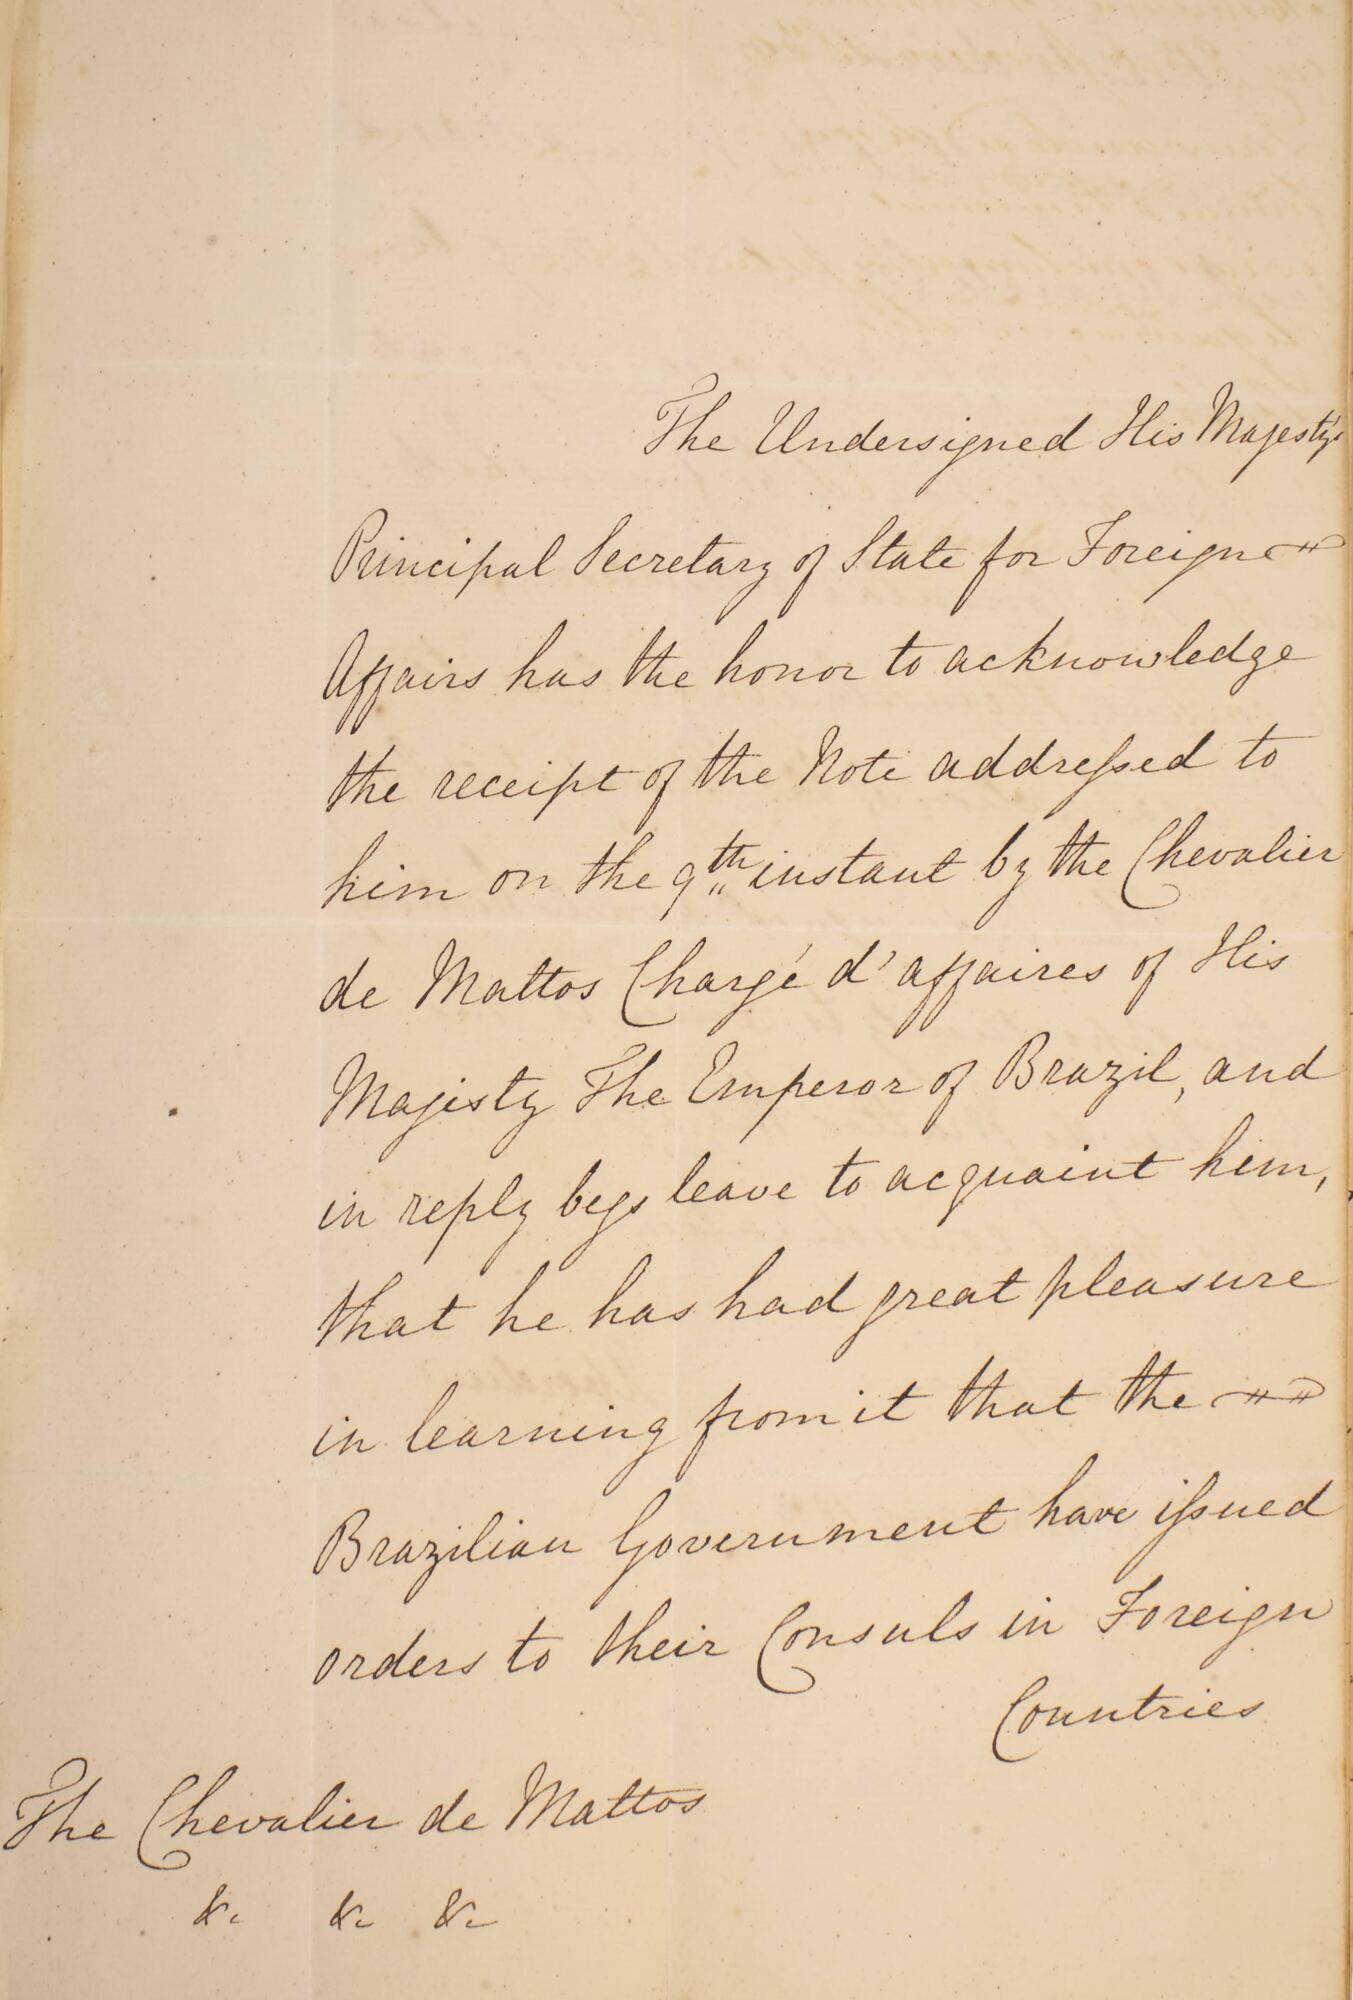 The Undersigned His Majesty's
Principal Secretary of State for Foreign
Affairs has the honor to acknowledge
the receipt of the Note addressed to
him on the 9th instant by the Chevalier
de Mattos Chargé d'affaires of His
Majesty The Emperor of Brazil, and
in reply begs leave to acquaint him,
that he has had great pleasure
in learning from it that the
Brazilian Government have issued
orders to their Consuls in Foreign
Countries
The Chevalier de Mattos
&c &c &c